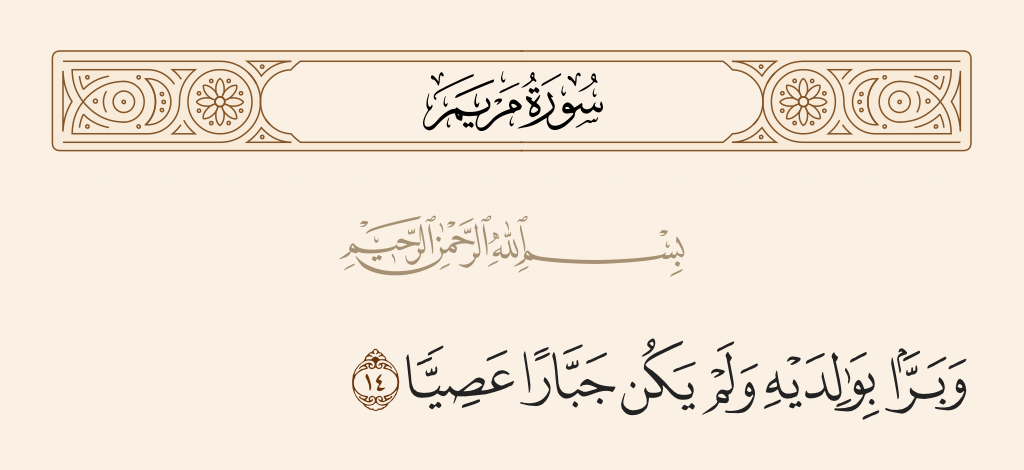 سُورَةُ مَرْيَمَ
بِسْمِ ٱللَّهِ ٱلرَّحْمَٰنِ ٱلرَّحِيمِ
وَبَرًّۢا بِوَٰلِدَيْهِ وَلَمْ يَكُن جَبَّارًا عَصِيًّا ١٤